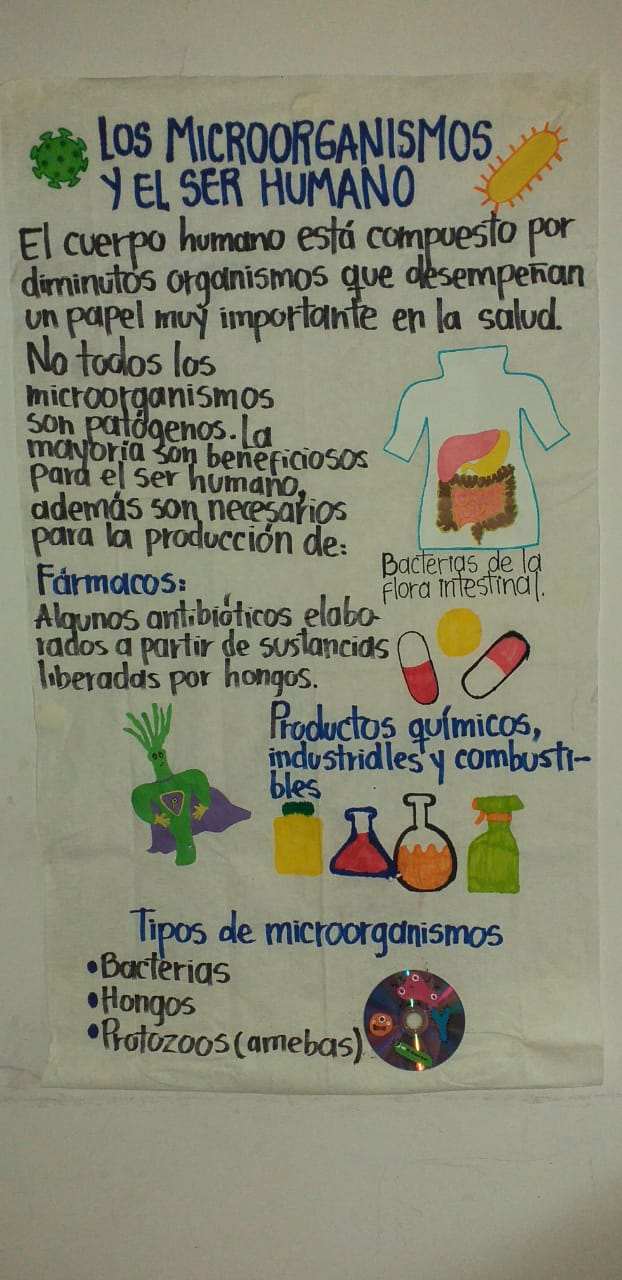 LOS MICROORGANISMOS
Y EL SER HUMANO
El cuerpo humano está compuesto por
diminutos organismos que desempeñan
un papel muy importante en la salud.
No todos los
microorganismos
son patógenos. La
mayoría son beneficiosos
para el ser humano,
además son necesarios
para la producción de:
Bacterias de la
flora intestinal.
Fármacos:
Algunos antibióticos elabo-
rados a partir de sustancias
liberadas por hongos.
Productos químicos,
industridles y combusti-
bles
Tipos de microorganismos
•Bacterias
•Hongos
•Protozoos (amebas)